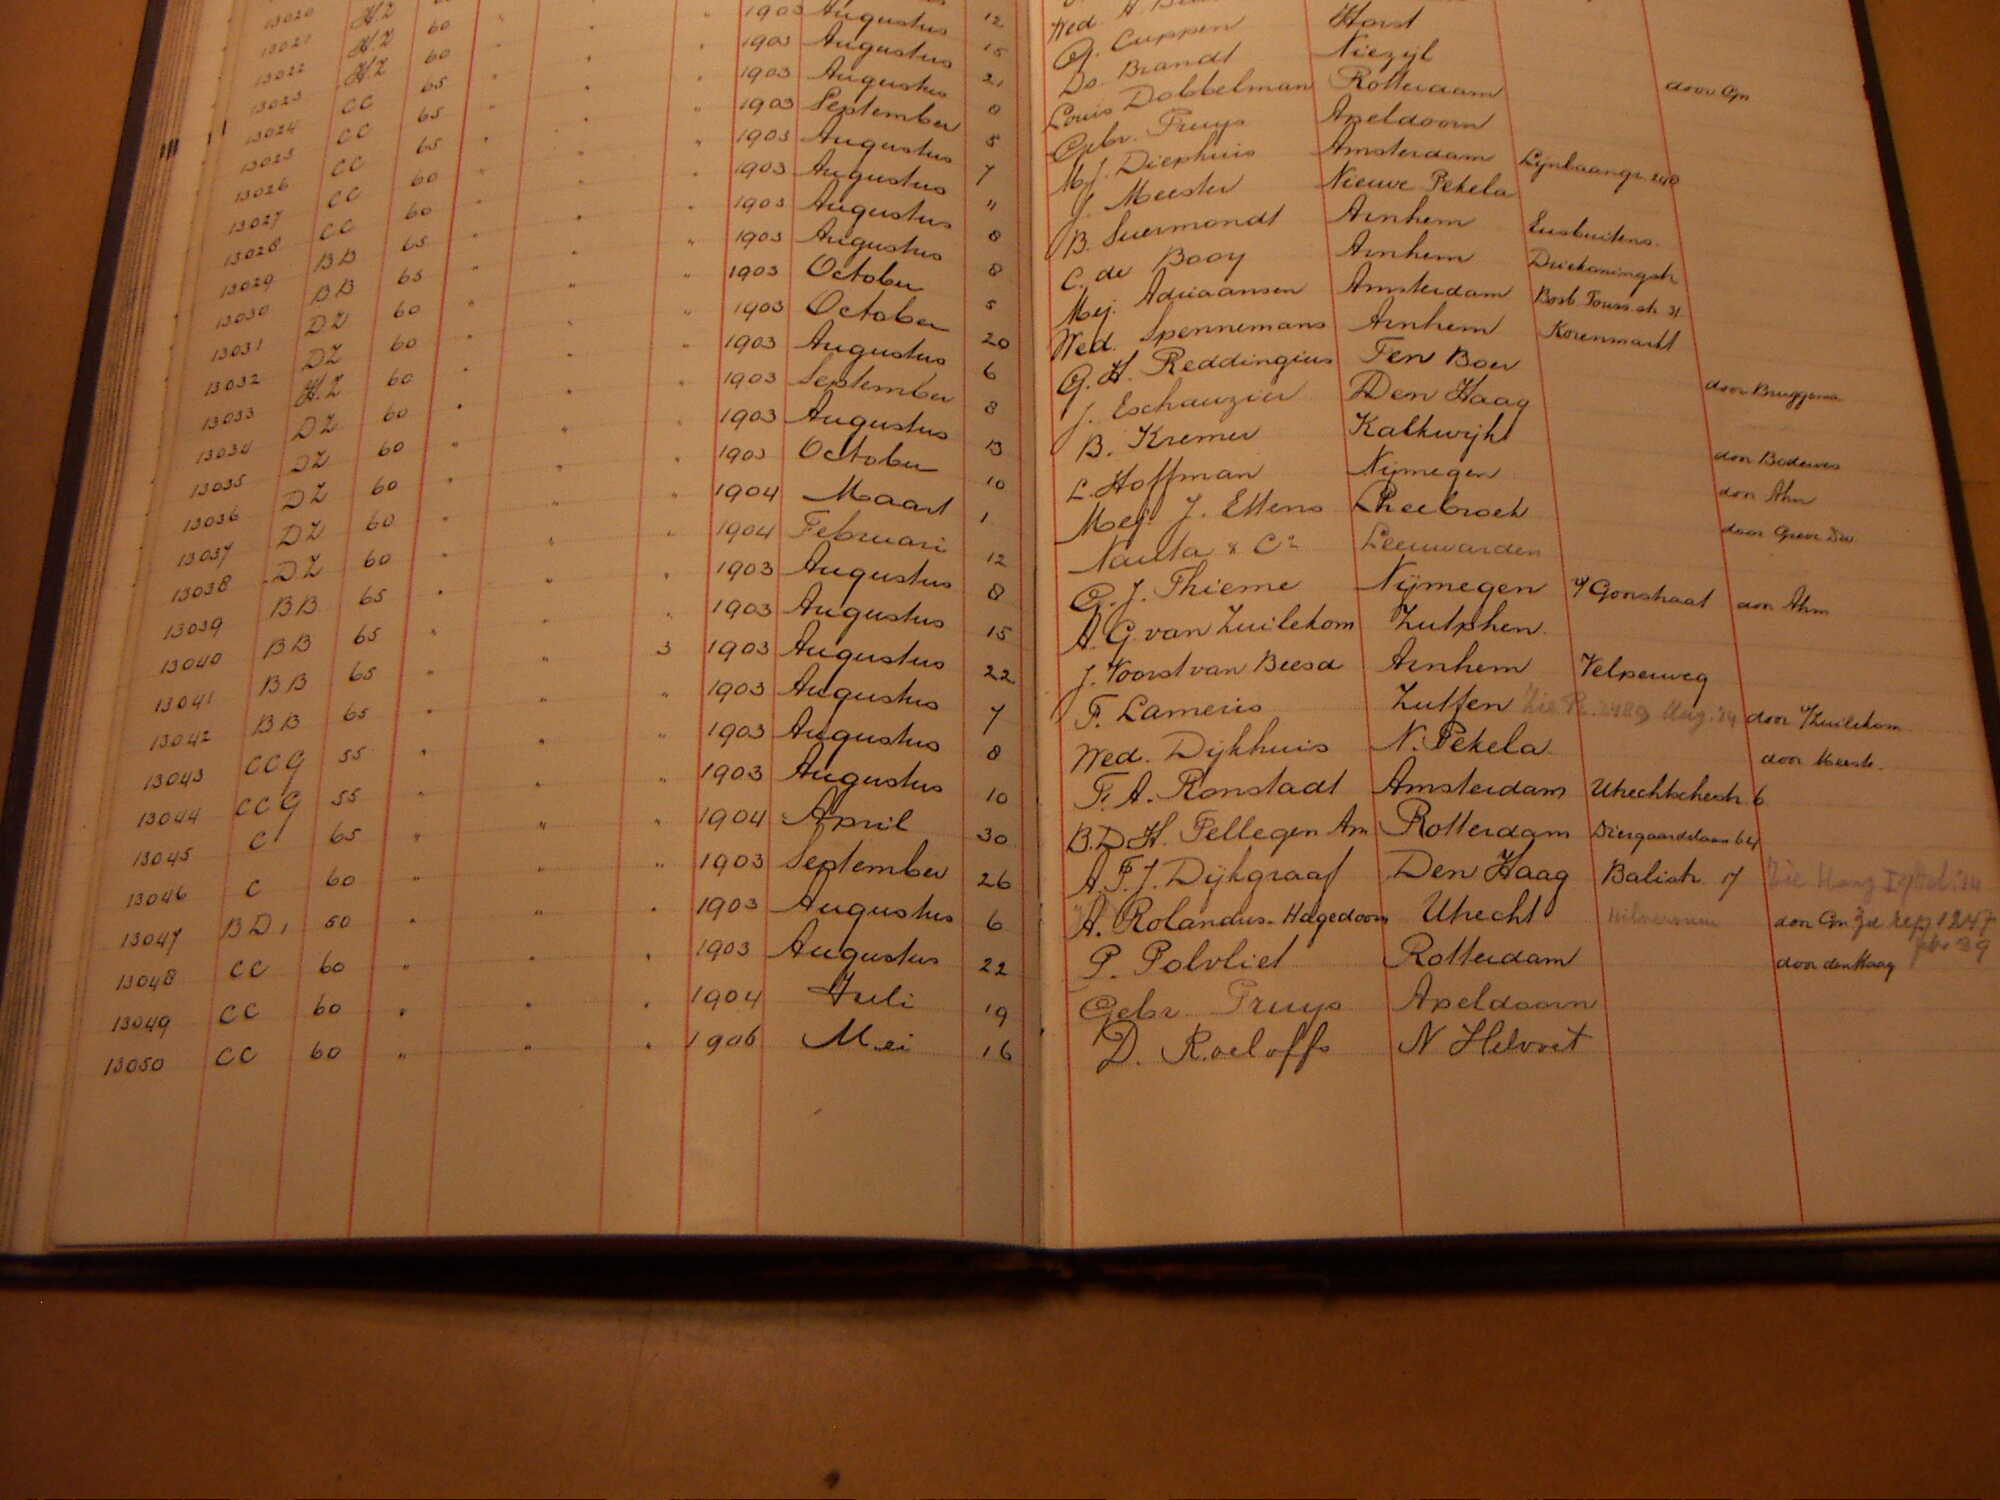 13020 H.Z
13021 H.Z 60 " " " 1903 Augustus 12 Wed. A.
13022 H.Z 60 " " " 1903 Augustus 15 G. Cuppen Horst
13023 CC 65 " " " 1903 Augustus 21 Do. Brandt Niezijl
13024 CC 65 " " " 1903 September 8 Louis Dobbelman Rotterdam door Gn
13025 CC 65 " " " 1903 Augustus 5 Gebr. Pruys Apeldoorn
13026 CC 60 " " " 1903 Augustus 7 Mej. Diephuis Amsterdam Lijnbaangr. 240
13027 CC 60 " " " 1903 Augustus " J. Meester Nieuwe Pekela
13028 BB 65 " " " 1903 Augustus 8 B. Suermondt Arnhem Eusbuitens.
13029 BB 65 " " " 1903 Augustus 8 C. de Booy Arnhem Driekoningstr
13030 DZ 60 " " " 1903 October 5 Mej. Adriaansen Amsterdam Bosb. Touss. str 31
13031 DZ 60 " " " 1903 October 20 Wed. Spennemans Arnhem Korenmarkt
13032 H.Z 60 " " " 1903 Augustus 6 G. H. Reddingius Ten Boer door Bruggema
13033 DZ 60 " " " 1903 September 8 J. Eschauzier Den Haag
13034 DZ 60 " " " 1903 Augustus 13 B. Kremer Kalkwijk door Bodewes
13035 DZ 60 " " " 1903 October 10 L. Hoffman Nijmegen door Ahm
13036 DZ 60 " " " 1904 Maart 1 Mej. J. Ettens Rheebroek
13037 DZ 60 " " " 1904 Februari 12 Nauta & Co Leeuwarden
13038 BB 65 " " " 1903 Augustus 8 G. J. Thieme Nijmegen v/ Gonstraat door Ahm
13039 BB 65 " " " 1903 Augustus 15 A. G. van Zuilekom Zutphen.
13040 BB 65 " " 3 1903 Augustus 22 J. Voorst van Beesd Arnhem Velperweg
13041 BB 65 " " " 1903 Augustus 7 F. Lameris Zutfen door v Zuilekom
13042 CCG 55 " " " 1903 Augustus 8 Wed. Dijkhuis N. Pekela door Meestr.
13043 CCG 55 " " " 1903 Augustus 10 F. A. Ronstadt Amsterdam Utrechtschestr. 6
13044 C 65 " " " 1904 April 30 B.D.H. Tellegen Azn Rotterdam Diergaardelaan 64
13045 C 60 " " " 1903 September 26 A. F. J. Dijkgraaf Den Haag Balistr. 17
13046 BD, 50 " " " 1903 Augustus 6 A. Rolandus-Hagedoorn Utrecht Hilversum door Gn Zie Rep 1247 febr 39
13047 CC 60 " " " 1903 Augustus 22 P. Polvliet Rotterdam door den Haag
13048 CC 60 " " " 1904 Juli 19 Gebr Pruys Apeldoorn
13049 CC 60 " " " 1906 Mei 16 D. Roeloffs N Helvoet
13050